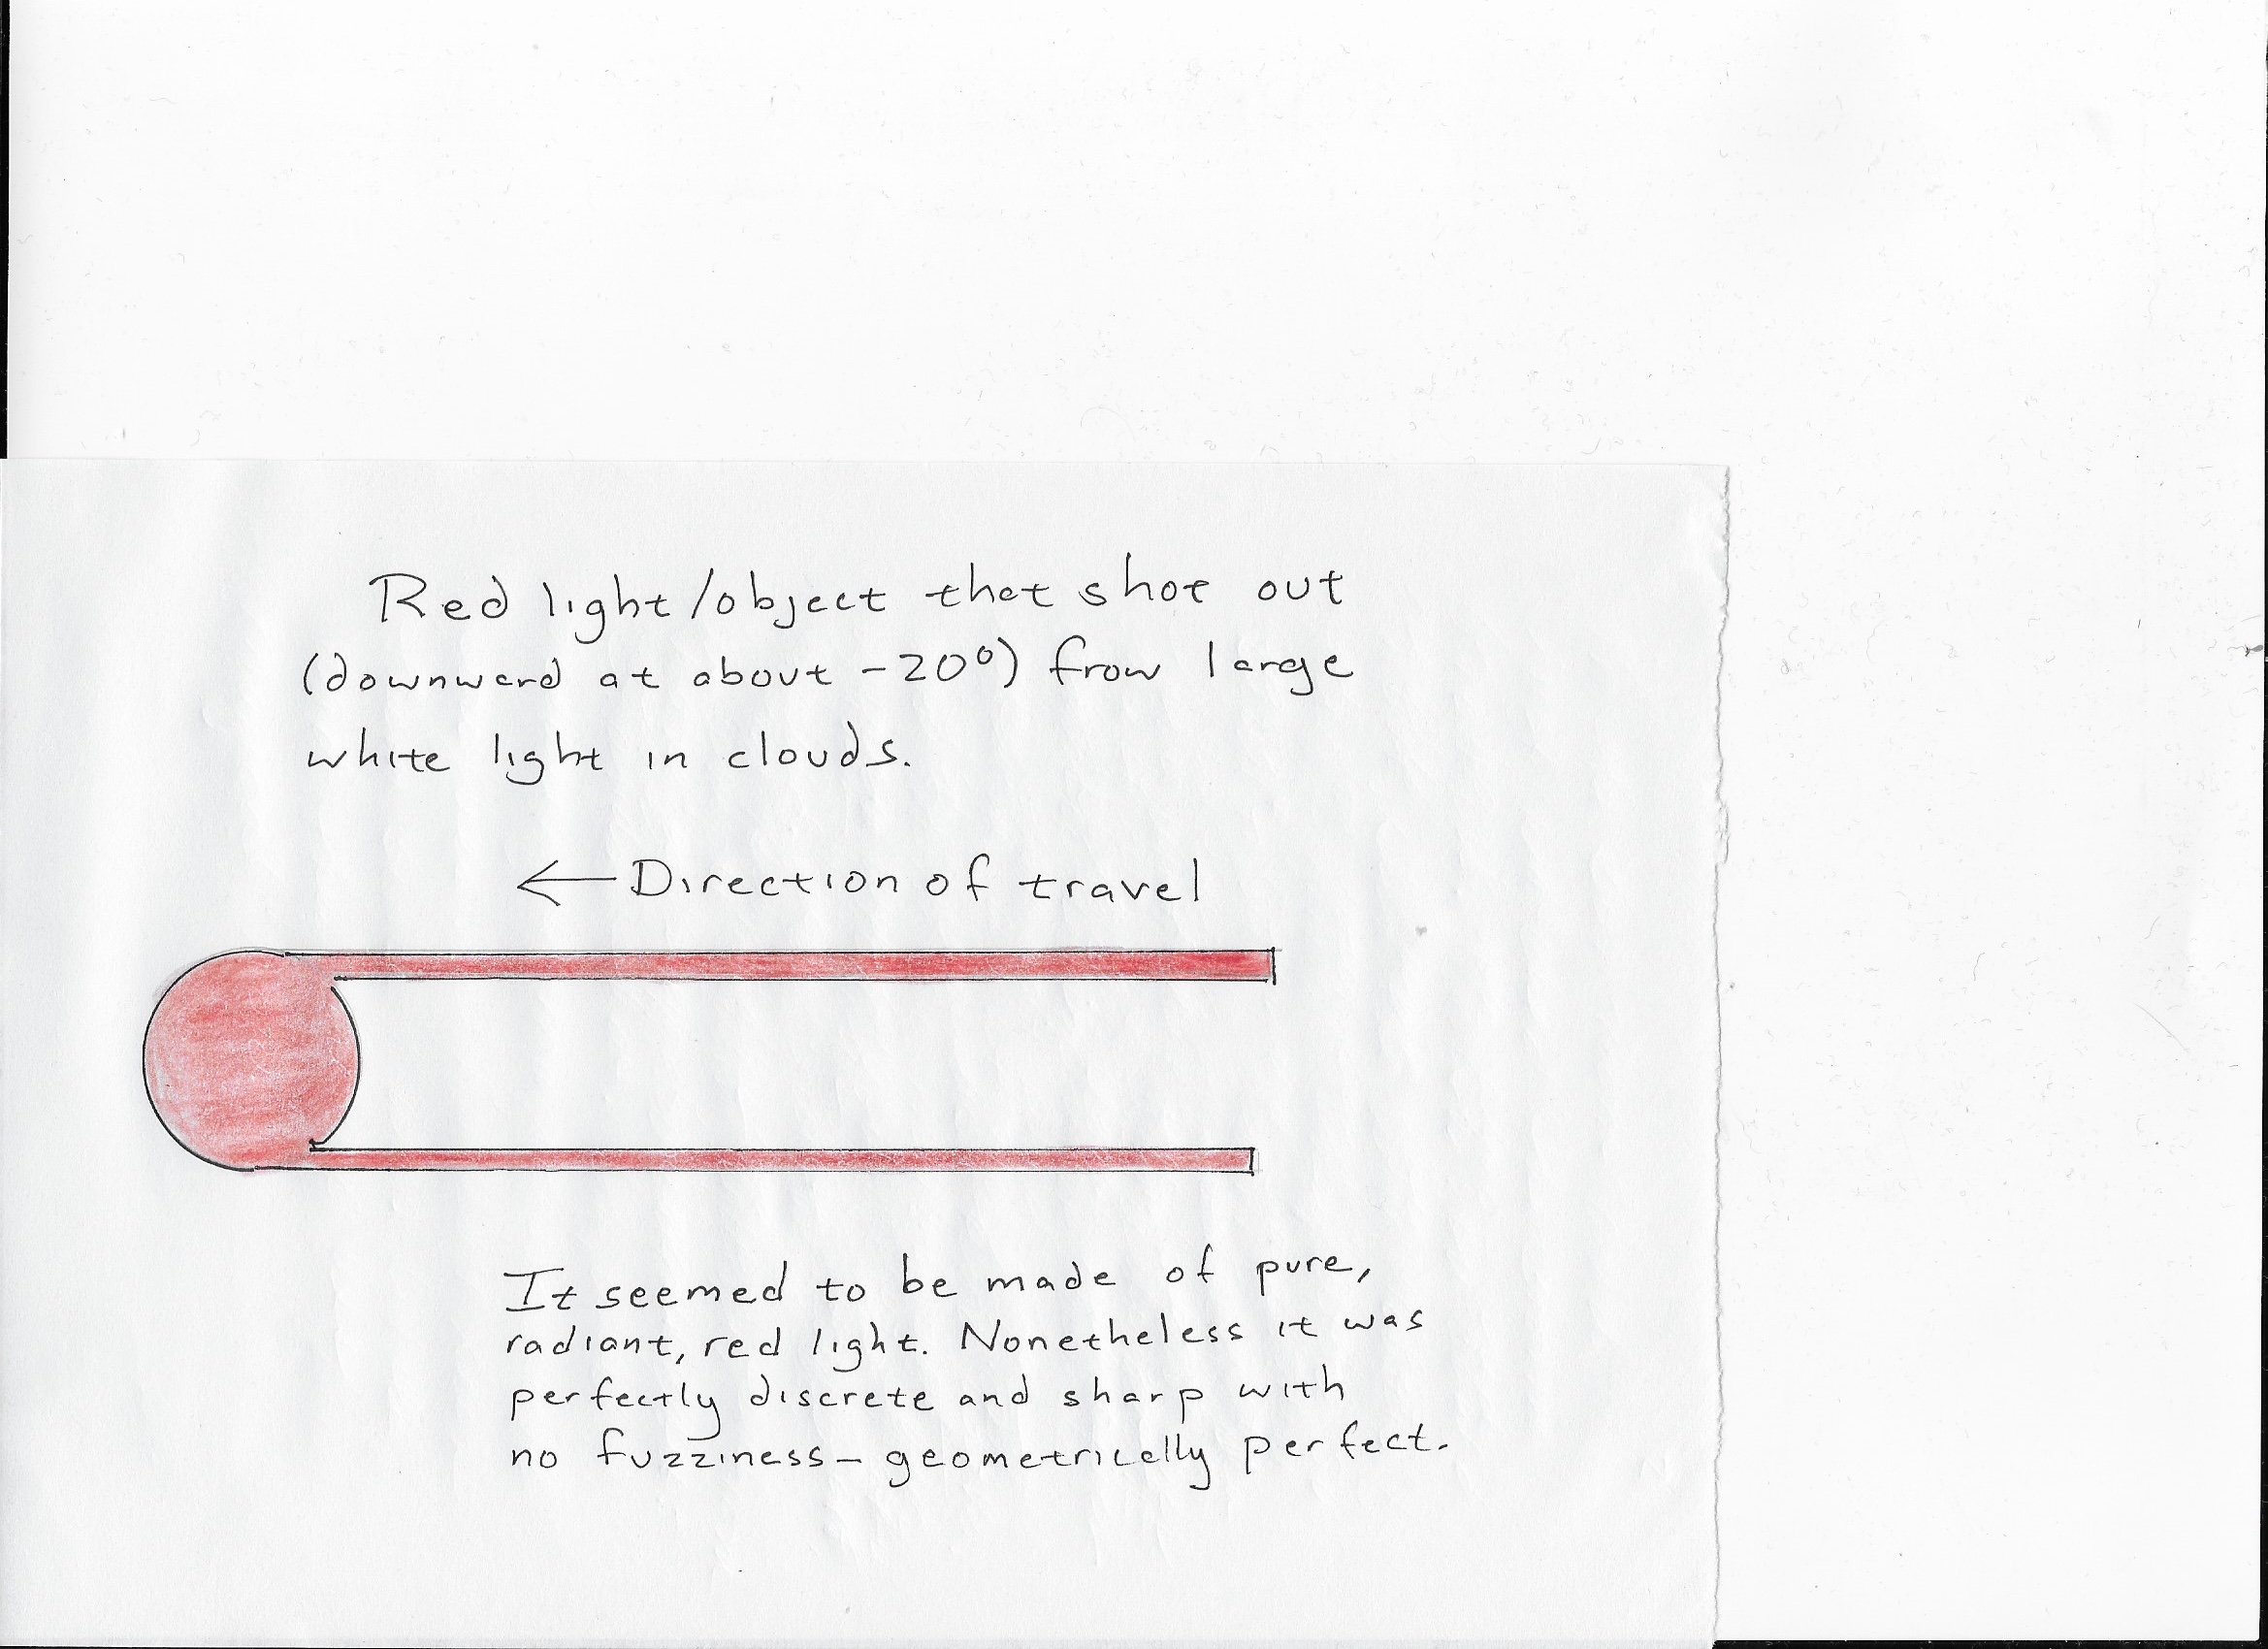 Red light/object that shot out
(downward at about -20°) from large
white light in clouds.
← Direction of travel
It seemed to be made of pure,
radiant, red light. Nonetheless it was
perfectly discrete and sharp with
no fuzziness – geometrically perfect.